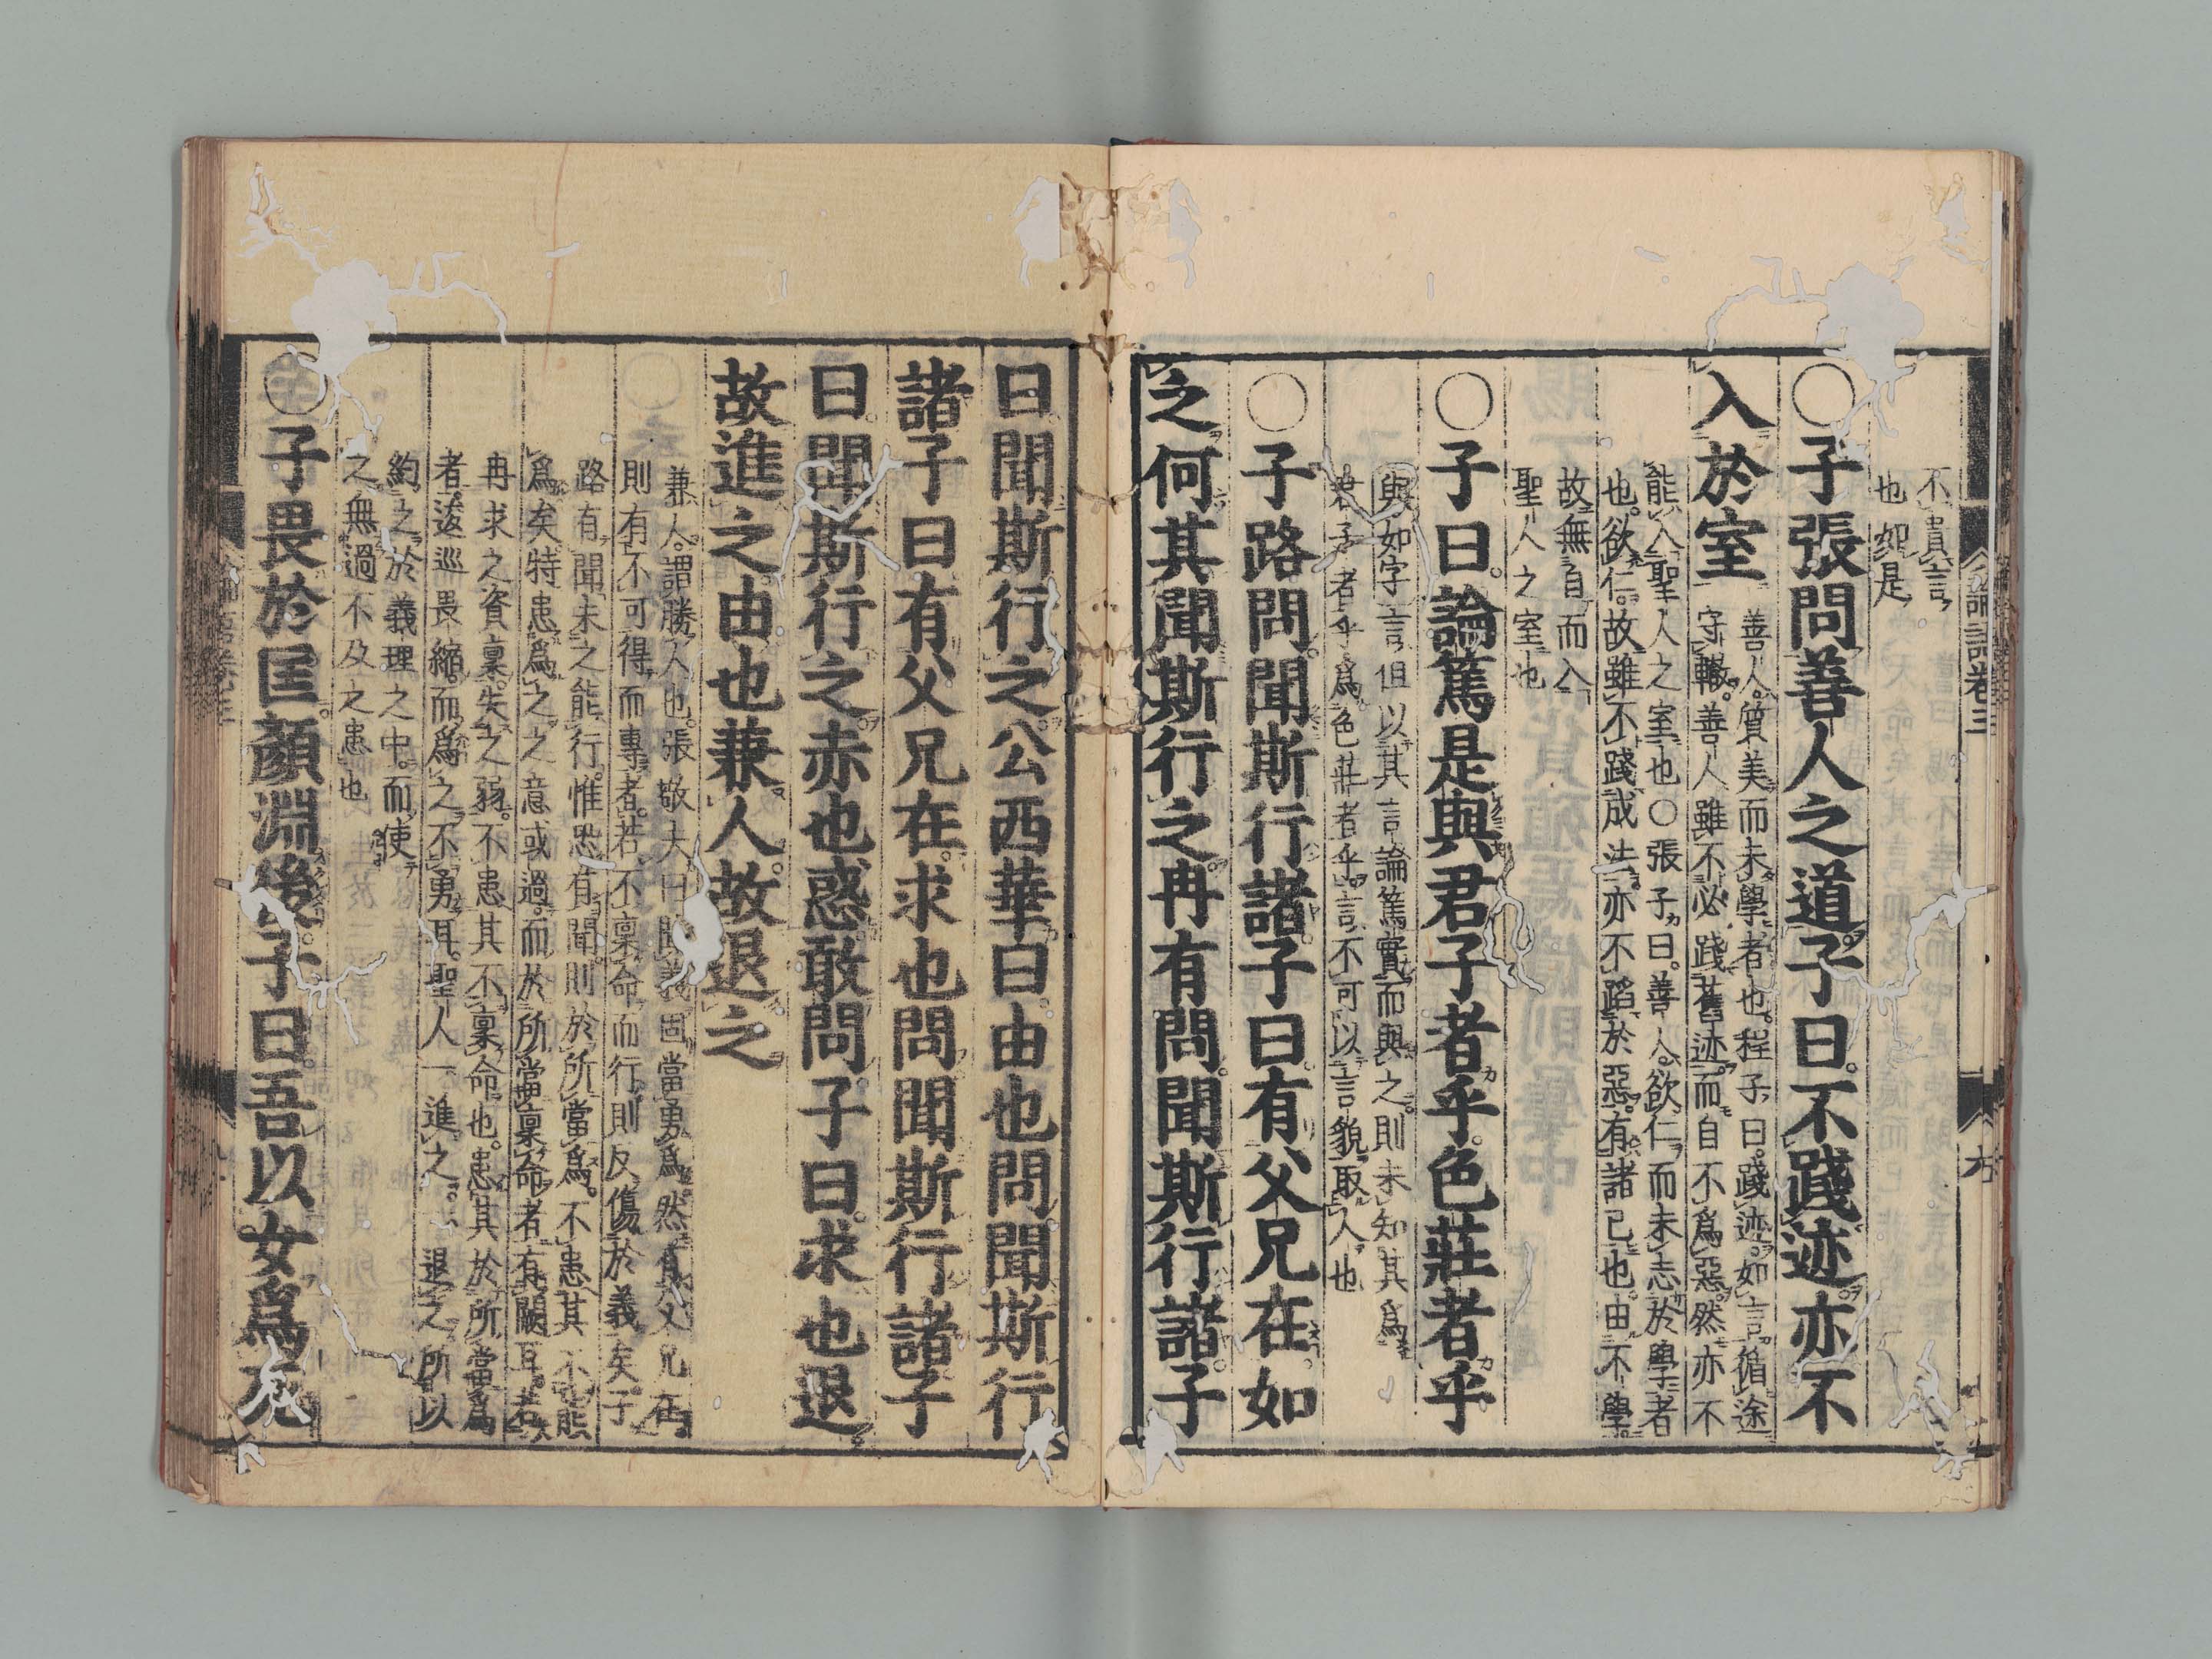 論語卷三
不貴言
也如是
○子張問善人之道子曰不踐迹亦不
入於室
善人質美而未學者也程子曰踐迹如言循途
守轍善人雖不必踐舊迹而自不爲惡然亦不
能入聖人之室也○張子曰善人欲仁而未志於學者
也欲仁故雖不踐成法亦不蹈於惡有諸己也由不學
故無自而入
聖人之室也
○子曰論篤是與君子者乎色莊者乎
與如字言但以其言論篤實而與之則未知其爲
君子者乎爲色莊者乎言不可以言貌取人也
○子路問聞斯行諸子曰有父兄在如
之何其聞斯行之冉有問聞斯行諸子
曰聞斯行之公西華曰由也問聞斯行
諸子曰有父兄在求也問聞斯行諸子
曰聞斯行之赤也惑敢問子曰求也退
故進之由也兼人故退之
兼人謂勝人也張敬夫曰聞義固當勇爲然有父兄在
則有不可得而專者若不稟命而行則反傷於義矣子
路有聞未之能行惟恐有聞則於所當爲不患其不能
爲矣特患爲之之意或過而於所當稟命者有闕耳若
冉求之資稟失之弱不患其不稟命也患其於所當爲
者逡巡畏縮而爲之不勇耳聖人一進之一退之所以
約之於義理之中而使
之無過不及之患也
○子畏於匡顏淵後子曰吾以女爲死